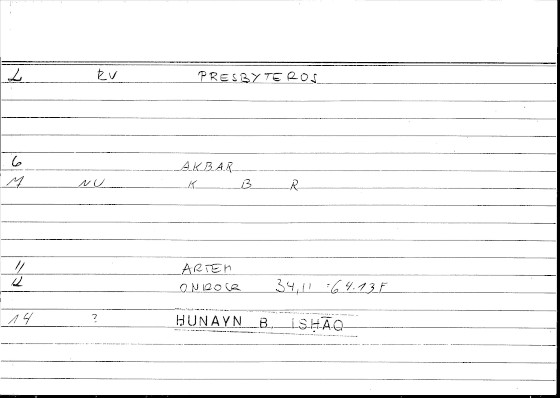 L RV PRESBYTEROS
6 AKBAR
M NU K B R
11 ARTEM
12 ONIROCR 34,11 -64.13F
14 ? HUNAYN B. ISHĀQ